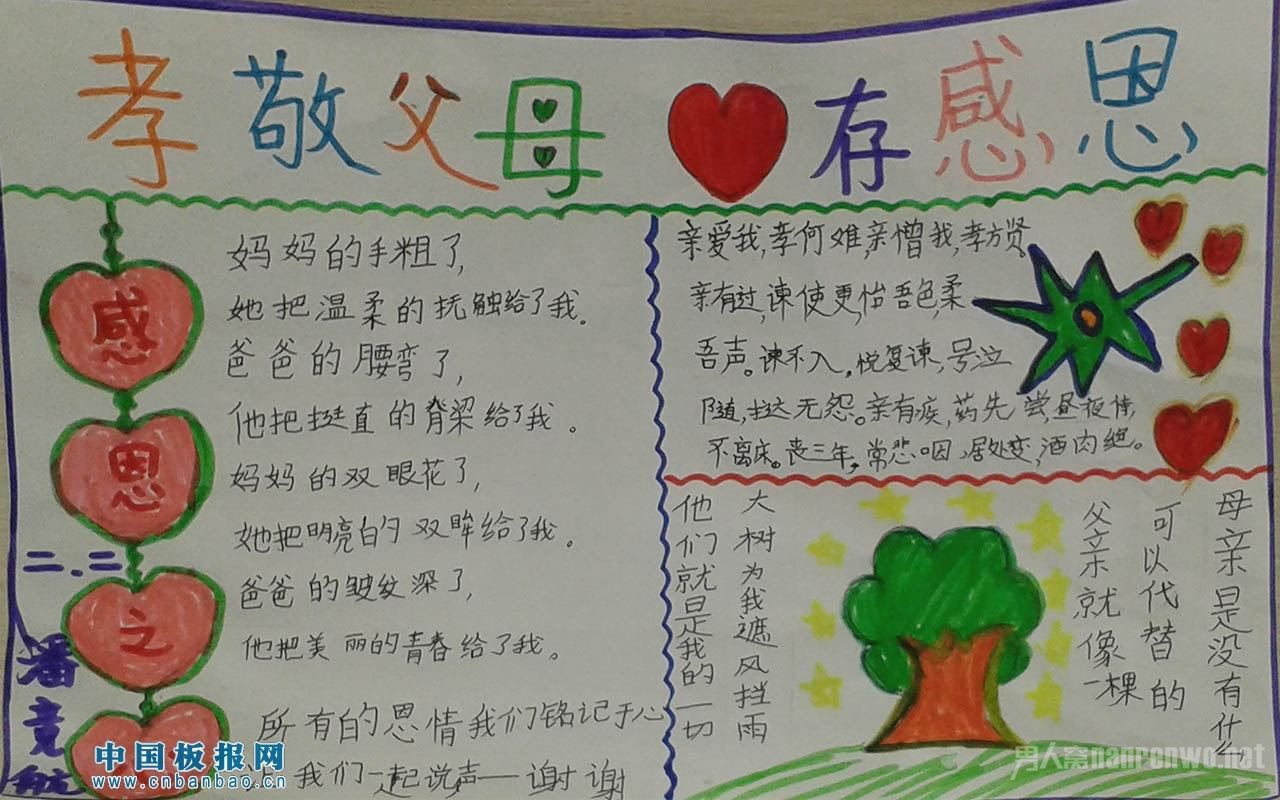 孝敬父母 存感恩
感
恩
之
妈妈的手粗了,
她把温柔的抚触给了我。
爸爸的腰弯了,
他把挺直的脊梁给了我。
妈妈的双眼花了,
她把明亮的双眸给了我。
爸爸的皱纹深了,
他把美丽的青春给了我。
所有的恩情我们铭记于心
我们一起说声——谢谢
亲爱我,孝何难,亲憎我,孝方贤。
亲有过,谏使更,怡吾色,柔
吾声。谏不入,悦复谏,号泣
随,挞无怨。亲有疾,药先尝,昼夜侍,
不离床。丧三年,常悲咽,居处变,酒肉绝。
母亲是没有什么
可以代替的
父亲就像
一棵
大树为我遮风挡雨
他们就是我的一切
二.二
潘竞航
中国板报网
www.cnbanbao.cn
男人窝nanrenwo.net